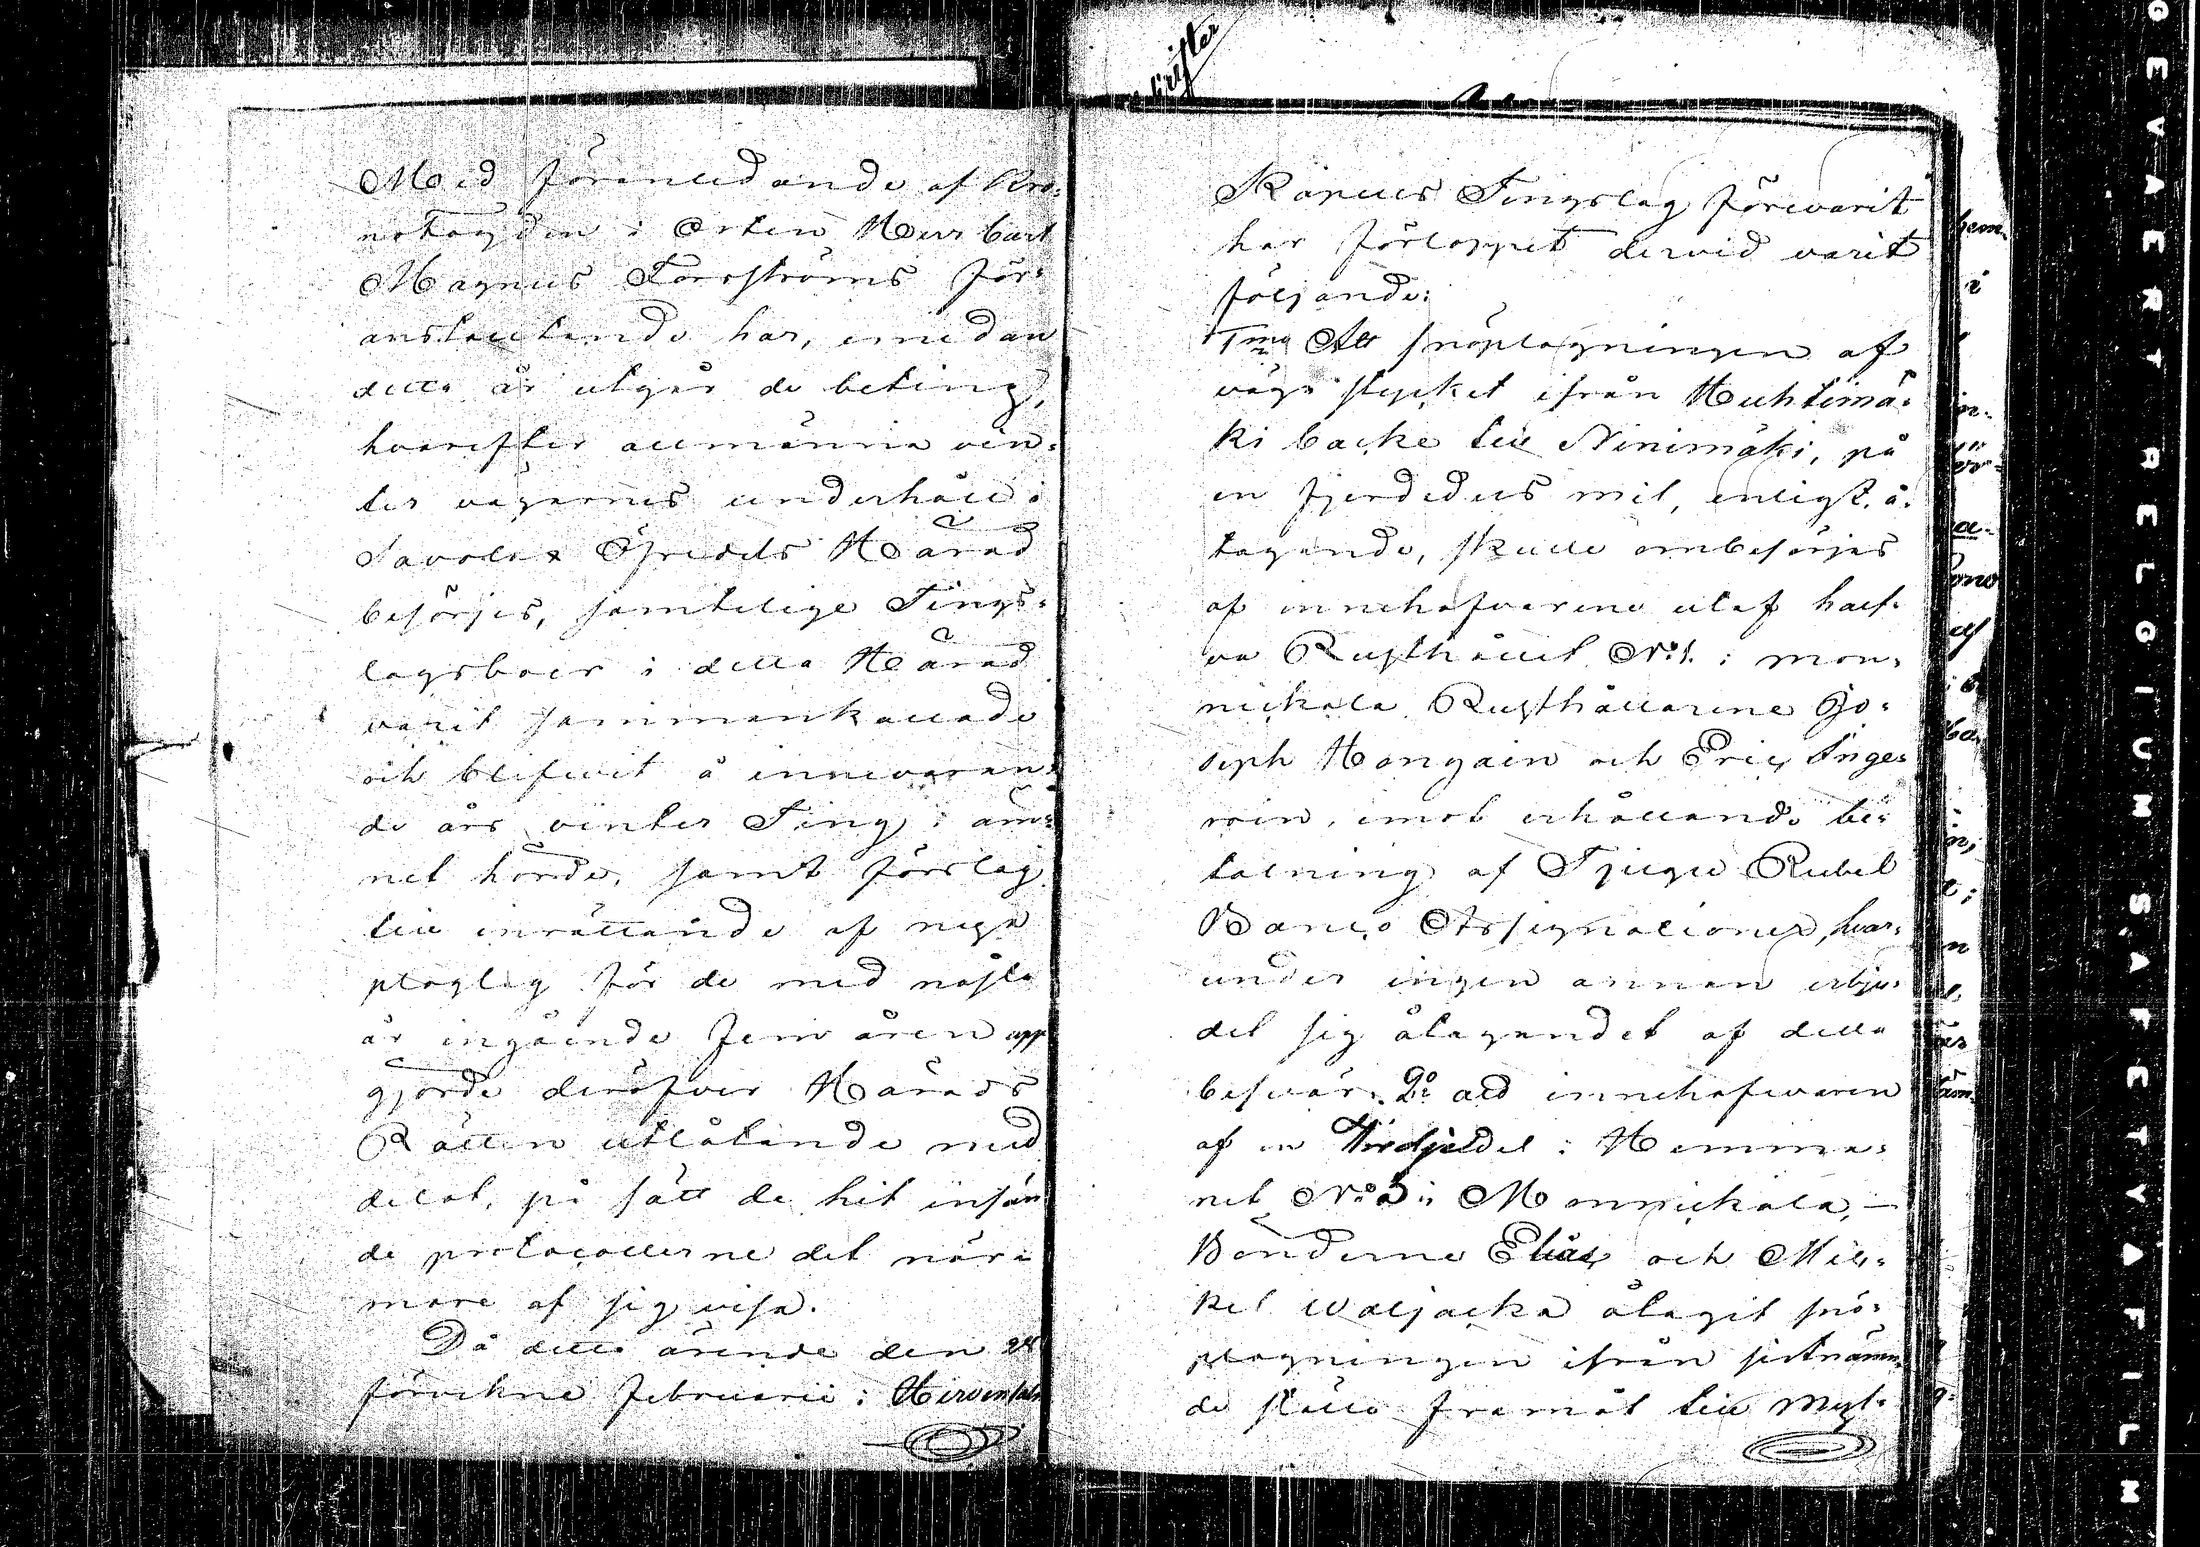 Med föranledande af Kro¬
nofogden i Orten Herr Carl
Magnus Forsströms för¬
anstaltande har, emedan
detta år utgår de beting,
hvarefter allmänna vin¬
ter vägarnes underhåll i
Savolax Öfredels Härad
besörjes, samtelige Tings¬
lagsboer i detta Härad
varit sammankallade
och blifvit å innevaran¬
de års vinter Ting i äm¬
net hörde, samt förslag
till inrättande af nya
ploglag för de med nästa
år ingående fem åren upp
gjorde deröfver Härads
Rätten utlåtande med
delat, på sätt de hit insän
de protocollerne det när¬
mare af sig visa.
Då detta ärende den 28
förvekne februarii i Hirvensalmi
Skrifter
Kapells Tingslag förevarit
har förloppet dervid varit
följande:
1mo Att snöplogningen af
vägastycket ifrån Huhtimä¬
ki backe till Ninimäki, på
en fjerdedels mil, enligt å¬
tagande, skulle ombesörjes
af innehafvarene utaf half¬
va Rusthållet No 1. i Mon¬
nickala Rusthållarene Jo¬
seph Hongain och Eric Inge¬
roin, emot erhållande be¬
talning af Tjugu Rubel
Banco Assignationer, hvar¬
under ingen annan erbju¬
det sig åtagandet af detta
besvär. 2o att innehafvaren
af en Tredjedel i Hemma¬
net No 3 i Monnickala, —
Bönderne Elias och Mic¬
kel Waljacka åtagit snö¬
plogningen ifrån sistnämn¬
de ställe framåt till Myl¬
GEVAERT RELGICUM SAFETY FILM